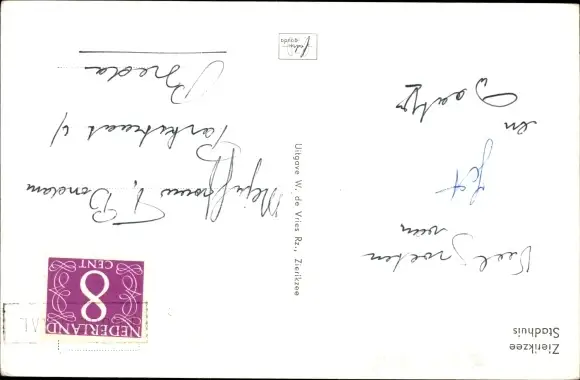 Zierikzee
Stadhuis
Veel groeten
van
Jet
en
Daatje
Uitgave W. de Vries Rz., Zierikzee
NEDERLAND
8
CENT
Mejuffrouw T. Bondam
Parkstraat
Breda